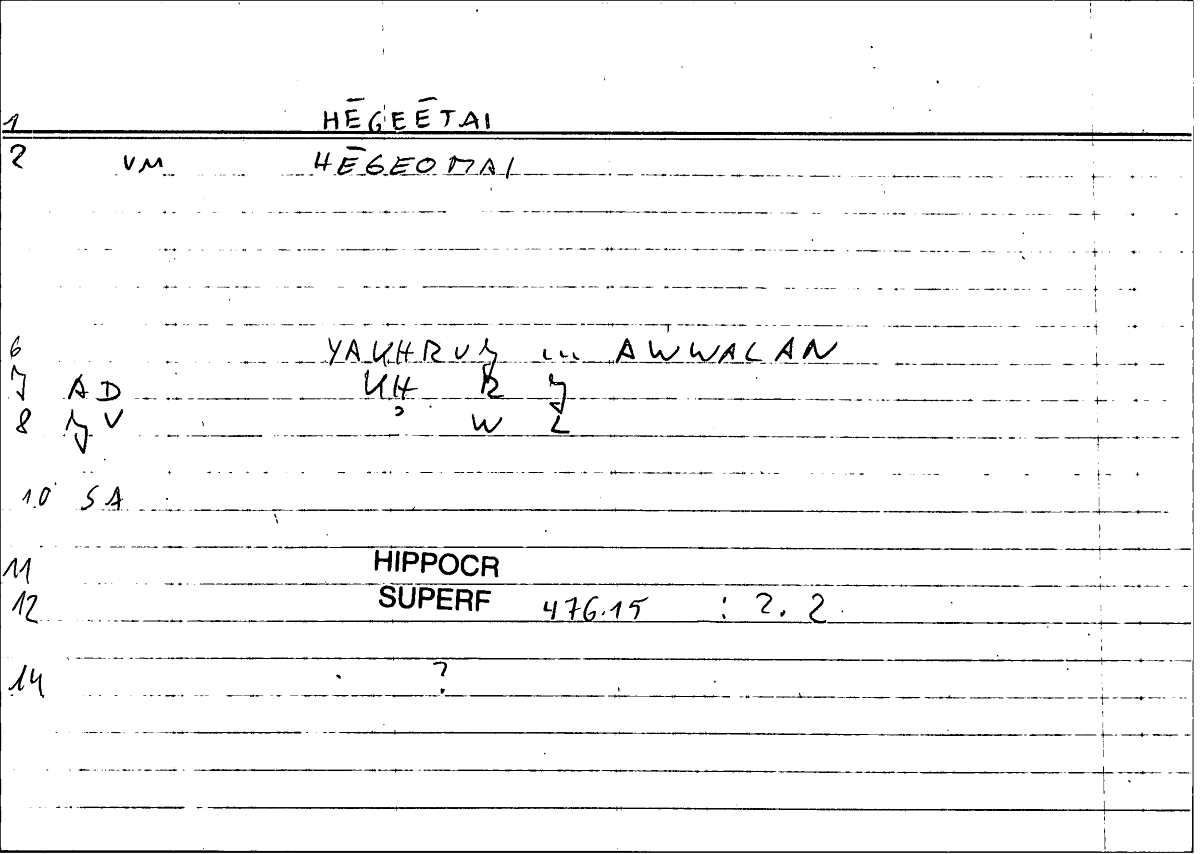 1 HĒGEĒTAI
2 VM HĒGEOMAI
6 YAKHRUJ ... AWWALAN
7 AD KH R J
8 JV ʾ W L
10 SA
11 HIPPOCR
12 SUPERF 476.15 : 2. 2
14 ?